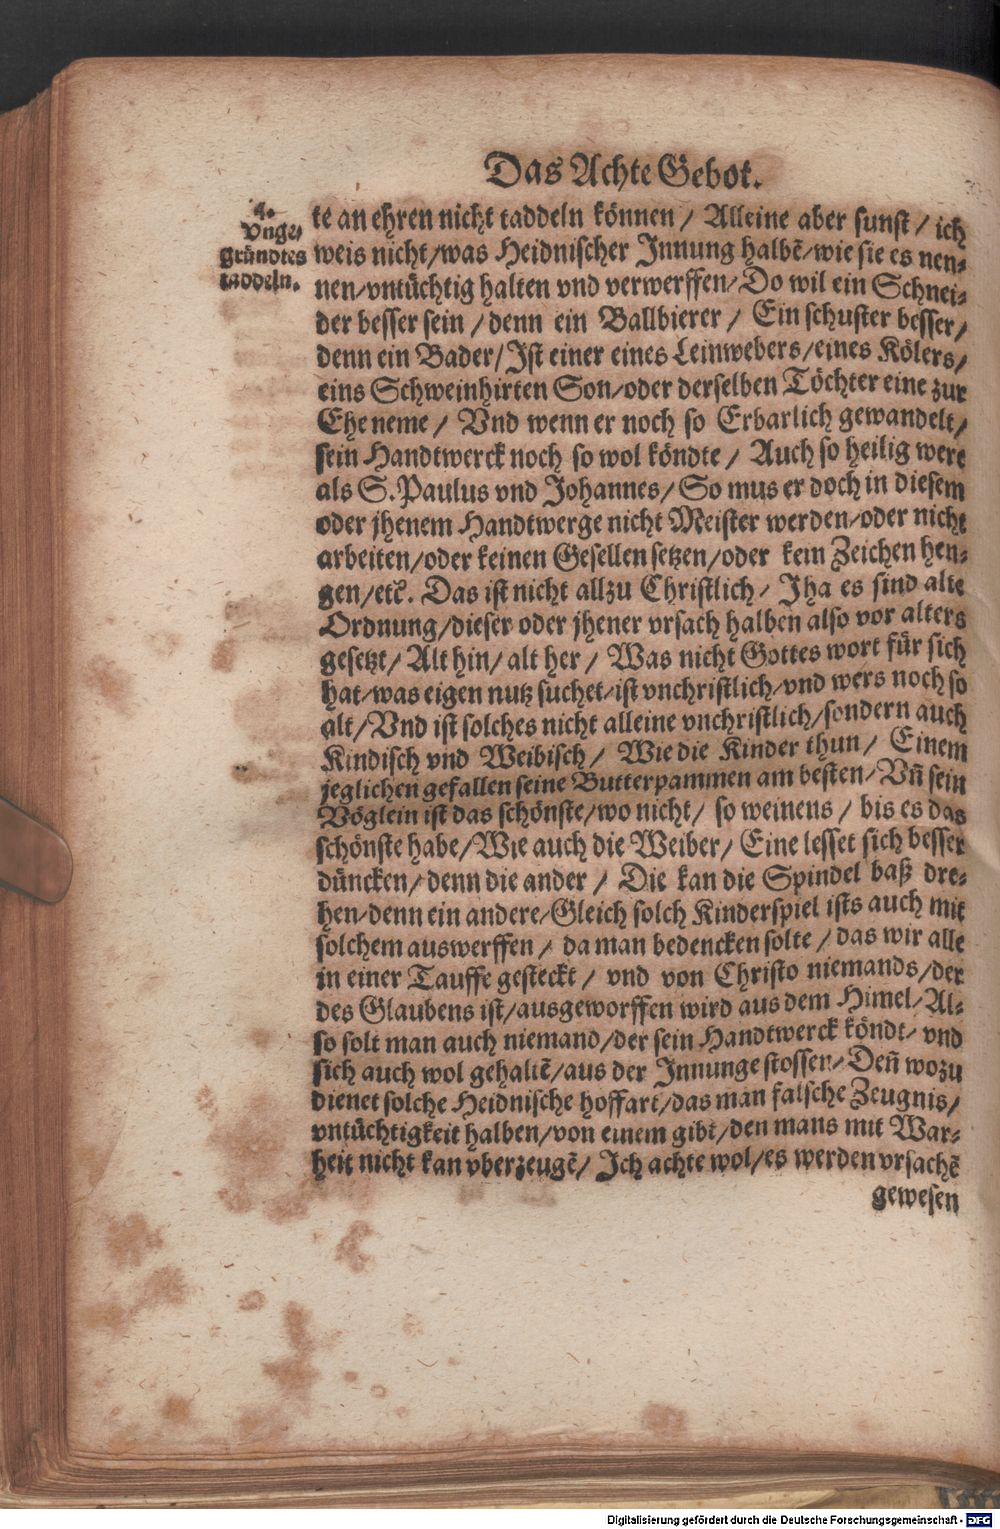 Das Achte Gebot.
4.
Vnge-
gründtes
taddeln.
te an ehren nicht taddeln können / Alleine aber sunst / ich
weis nicht / was Heidnischer Innung halbē / wie sie es nen-
nen / vntüchtig halten vnd verwerffen / Do wil ein Schnei-
der besser sein / denn ein Ballbierer / Ein schuster besser /
denn ein Bader / Ist einer eines Leinwebers / eines Kölers /
eins Schweinhirten Son / oder derselben Töchter eine zur
Ehe neme / Vnd wenn er noch so Erbarlich gewandelt /
sein Handtwerck noch so wol köndte / Auch so heilig were
als S. Paulus vnd Johannes / So mus er doch in diesem
oder jhenem Handtwerge nicht Meister werden / oder nicht
arbeiten / oder keinen Gesellen setzen / oder kein Zeichen hen-
gen / etc. Das ist nicht allzu Christlich / Jha es sind alte
Ordnung / dieser oder jhener vrsach halben also vor alters
gesetzt / Alt hin / alt her / Was nicht Gottes wort für sich
hat / was eigen nutz suchet / ist vnchristlich / vnd wers noch so
alt / Vnd ist solches nicht alleine vnchristlich / sondern auch
Kindisch vnd Weibisch / Wie die Kinder thun / Einem
jeglichen gefallen seine Butterpammen am besten / Vñ sein
Vöglein ist das schönste / wo nicht / so weinens / bis es das
schönste habe / Wie auch die Weiber / Eine lesset sich besser
düncken / denn die ander / Die kan die Spindel baß dre-
hen / denn ein andere / Gleich solch Kinderspiel ists auch mit
solchem auswerffen / da man bedencken solte / das wir alle
in einer Tauffe gesteckt / vnd von Christo niemands / der
des Glaubens ist / ausgeworffen wird aus dem Himel / Al-
so solt man auch niemand / der sein Handtwerck köndt / vnd
sich auch wol gehaltē / aus der Innunge stossen / Deñ wozu
dienet solche Heidnische hoffart / das man falsche Zeugnis /
vntüchtigkeit halben / von einem gibt / den mans mit War-
heit nicht kan vberzeugē / Ich achte wol / es werden vrsachē
gewesen
Digitalisierung gefördert durch die Deutsche Forschungsgemeinschaft - DFG